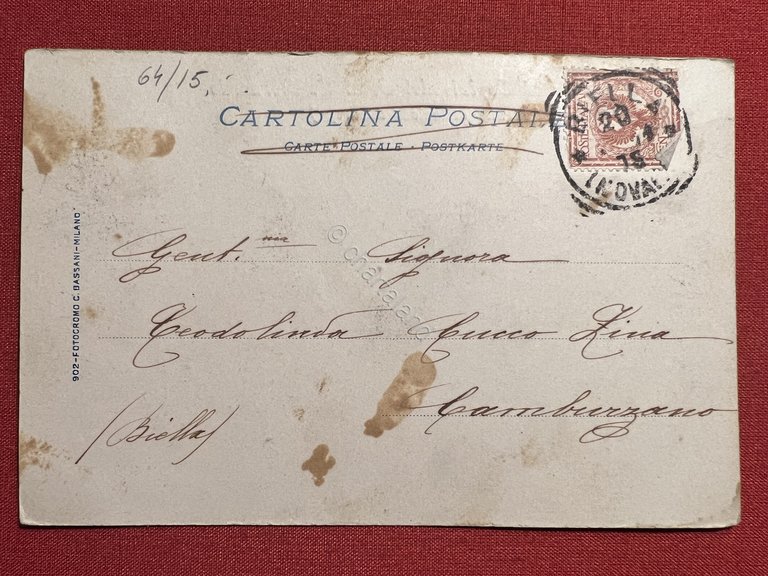 64/15,
CARTOLINA POSTALE
CARTE POSTALE - POSTKARTE
BIELLA
20
15
(NOVARA)
902-FOTOCROMO C. BASSANI-MILANO
Gent.ma Signora
Teodolinda Cucco Zina
Camburzano
(Biella)